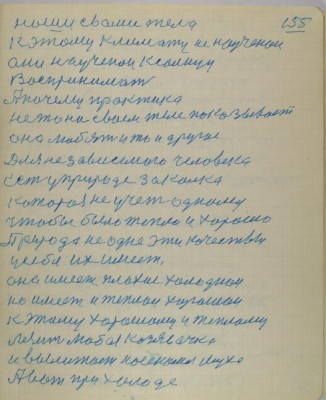 155
наши свами тела
К этому климату не научены
они научены к солнцу
Воспринимат
А почему практика
не то на своем теле показывает
она любят и то и другое
Для независимого человека
Ест у природе закалка
Которая не учет одному
чтобы было тепло и хорошо
Природа не одне эти качествы
у себя их имеет
она имеет плохие холоднои
но имеет и теплои хорошои
К этому хорошому и теплому
Лезит любая козявачка
и вылитает насекомы муха
А вот при холоде